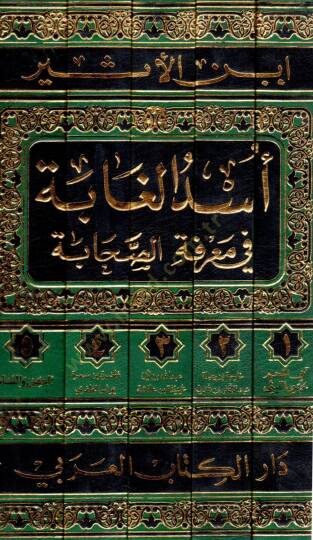 ابن الأثير
أسد الغابة
في معرفة الصحابة
١ ٢ ٣ ٤ ٥
دار الكتاب العربي